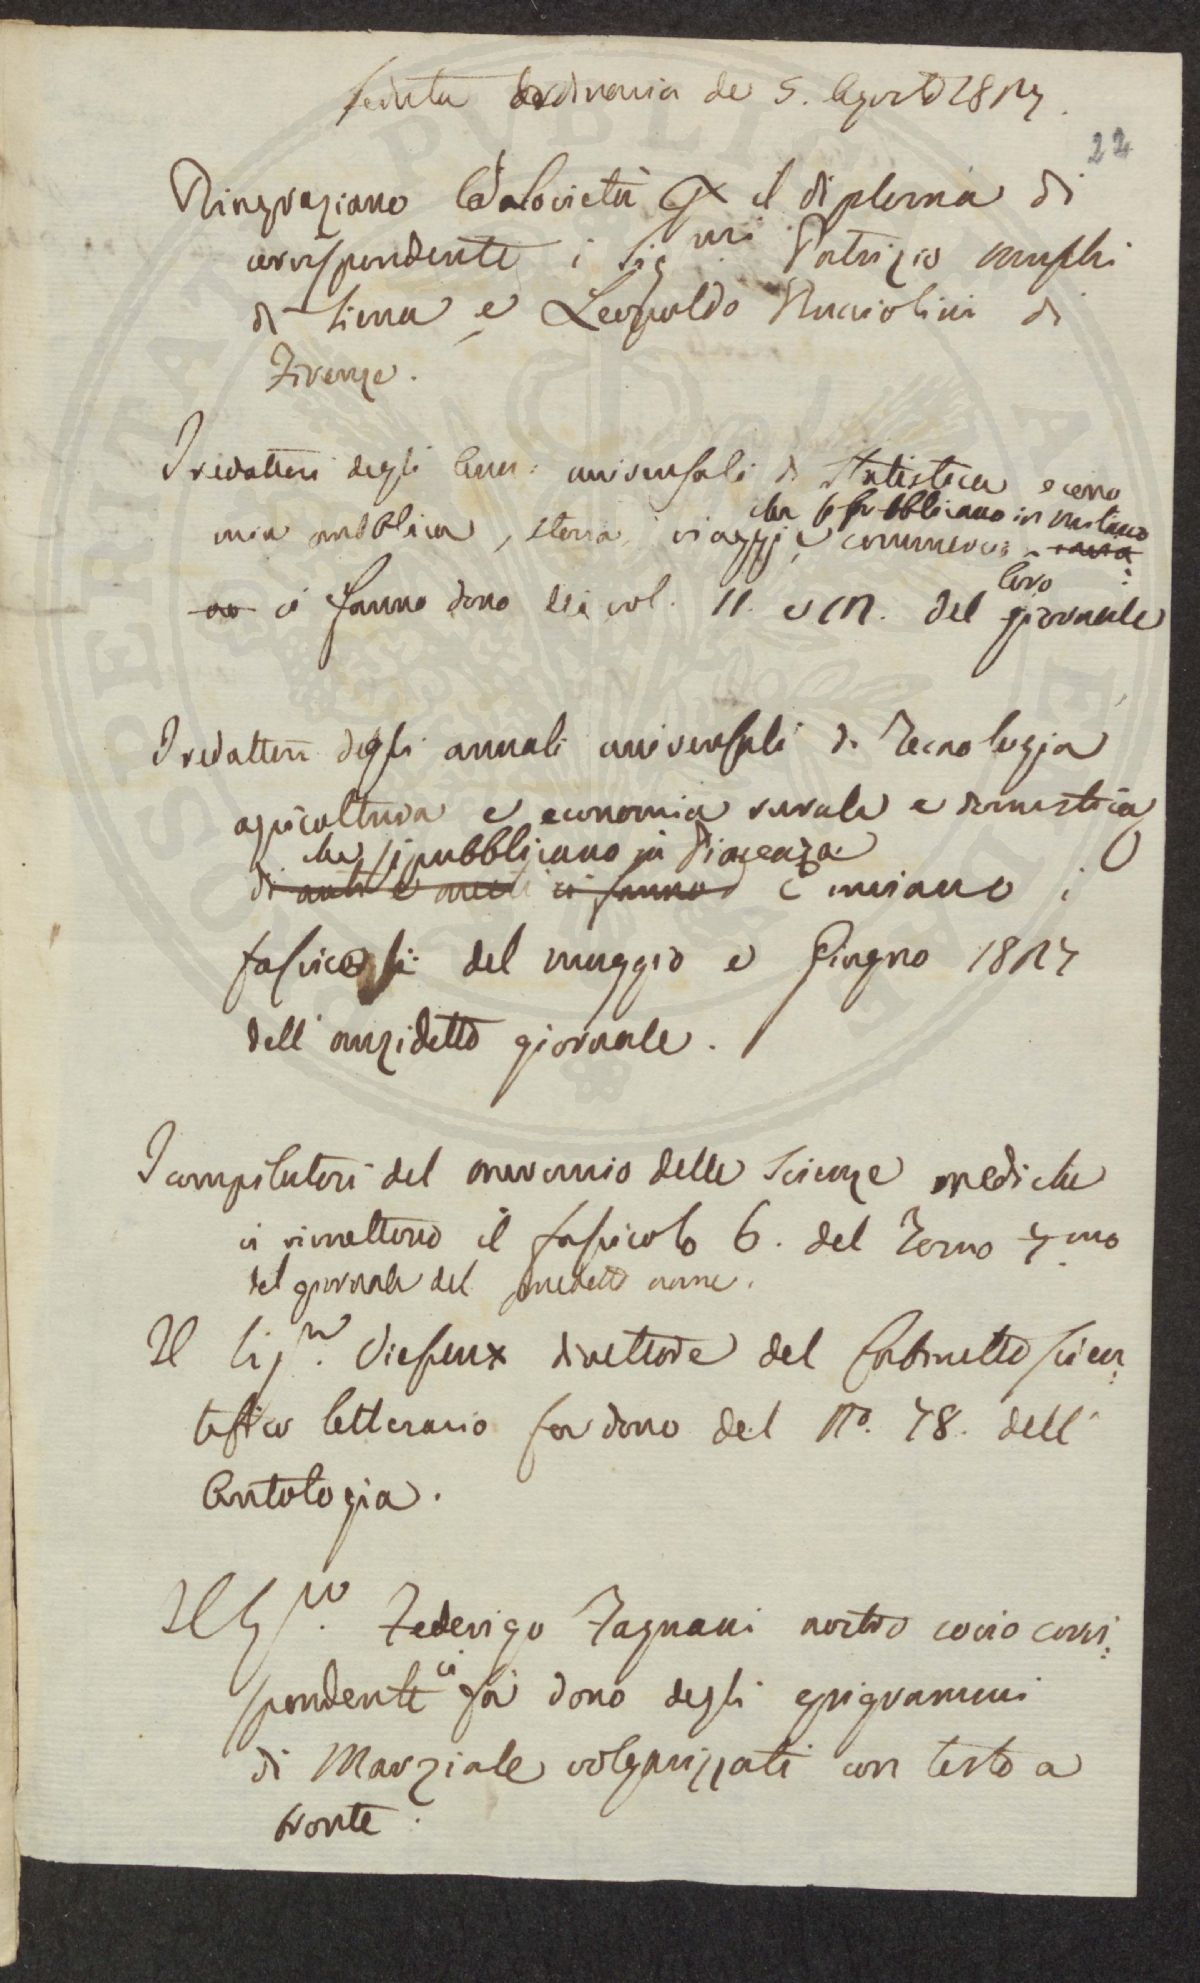 Seduta ordinaria de 5. Agosto 1827.
22
Ringraziano la Società per il diploma di
corrispondente i Sig.ri Patrizio
di Siena e Leopoldo Nucciolini di
Firenze.
I redattori degli Ann: universali di Statistica econo
mia pubblica, storia, viaggi, e commercio
che si pubblicano in Milano
ci fanno dono dei vol. 11. e 12. del giornale
loro
I redattori degli annali universali di Tecnologia
agricoltura e economia rurale e domestica
che si pubblicano in Piacenza
di arti e mestieri ci fanno c'inviano i
fascicoli del maggio e Giugno 1827
dell'anzidetto giornale.
I compilatori del mercurio delle Scienze mediche
ci rimettono il fascicolo 6. del Tomo 7.mo
del giornale del predetto nome.
Il Sig.r Viesseux direttore del Gabinetto scien:
tifico letterario fa dono del No. 78. dell'
Antologia.
Il Sig.ro Federigo Fagnani nostro socio corri:
spondente ci fà dono degli epigrammi
di Marziale volgarizzati con testo a
fronte.